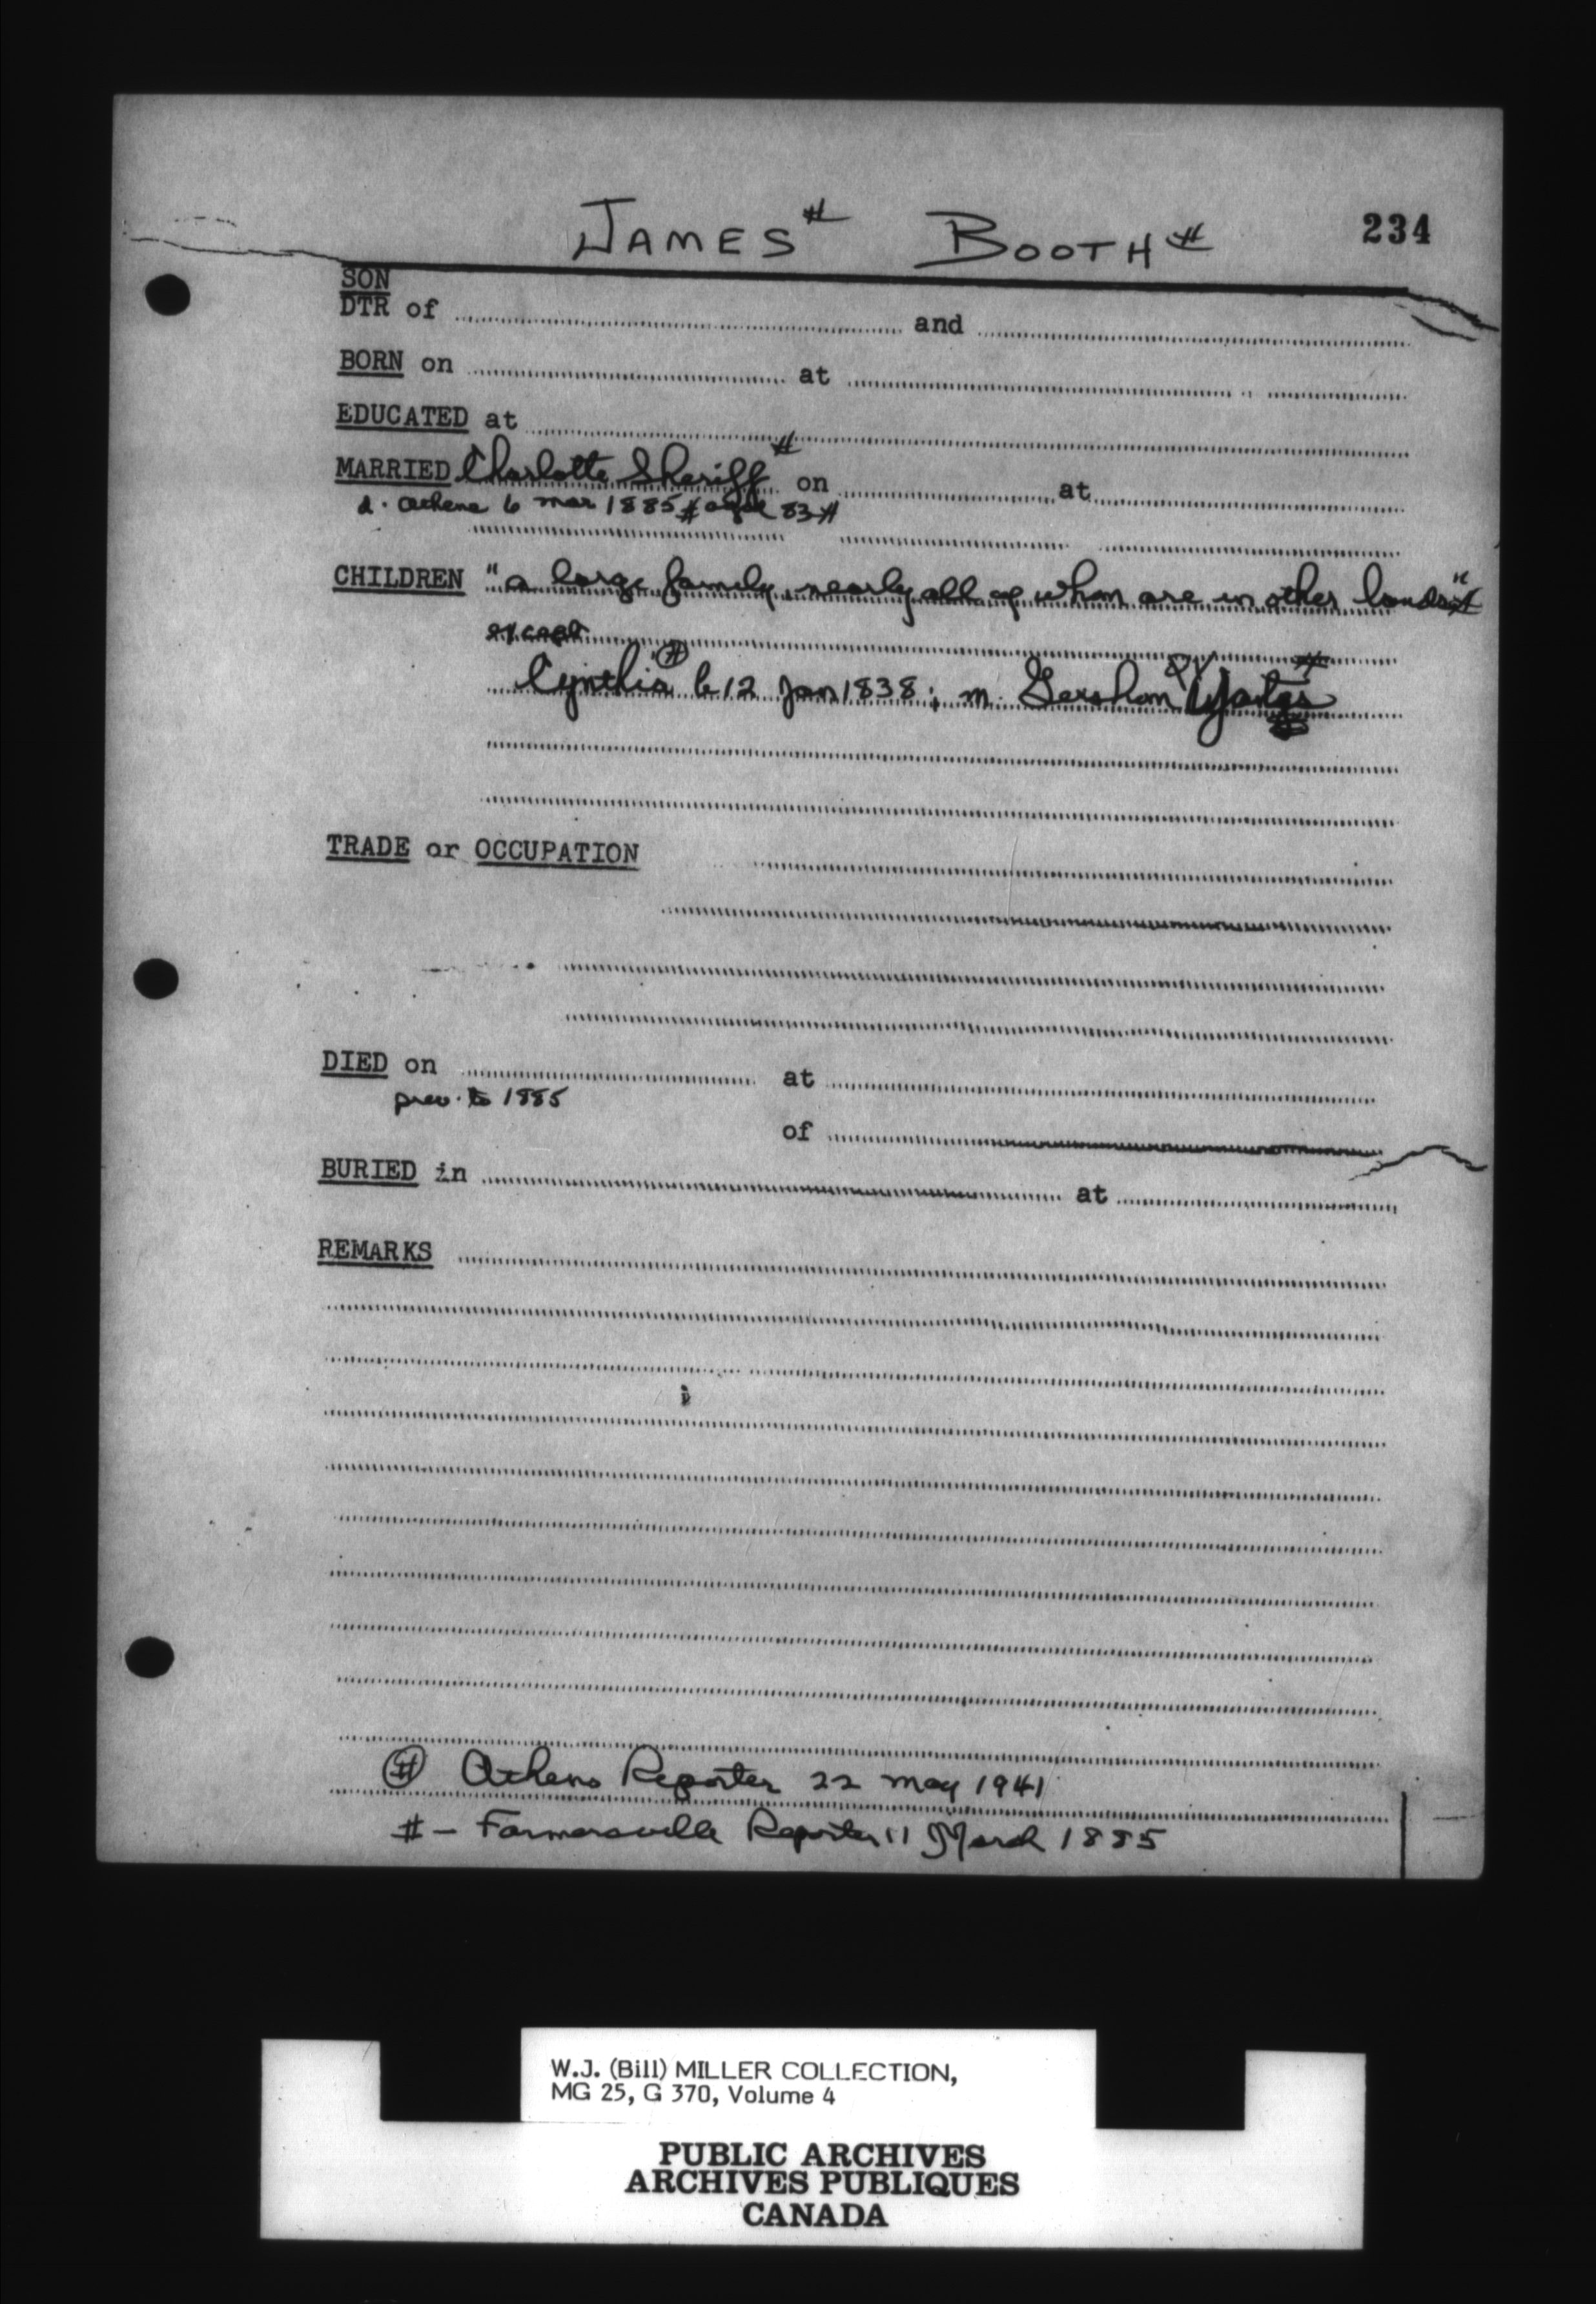 JAMES # BOOTH #
234
SON
DTR of and
BORN on at
EDUCATED at
MARRIED Charlotte Sheriff # on at
d. Athens 6 Mar 1885 # aged 83 #
CHILDREN "a large family, nearly all of whom are in other lands" #
except
Cynthia # b 12 Jan 1838; m. Gershom Yates #
TRADE or OCCUPATION
DIED on at
prev. to 1885
of
BURIED in at
REMARKS
# Athens Reporter 22 May 1941
# - Farmersville Reporter 11 March 1885
W.J. (Bill) MILLER COLLECTION,
MG 25, G 370, Volume 4
PUBLIC ARCHIVES
ARCHIVES PUBLIQUES
CANADA